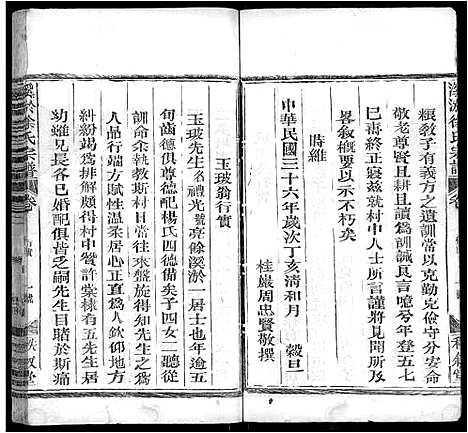 糧敎子有義方之遺訓當以克勤克儉守分安命
敬老尊賢且耕且讀爲訓誡良言噫兮年登五七
而尙康健甚欽羡就村中人士所言謹將見聞以
示不朽矣
時維
中華民國三十六年歲次丁亥清和月 榖旦
桂巖周忠賢敬撰
玉玻翁行實
玉玻先生名禮光號亮餘溪淤一居士也年逾五
旬齒德俱尊德配楊氏四德備矣子四女二聽從
訓命余執教斯村日常往來盤旋向知先生之爲
人品行端方賦性溫和居心正直爲人欽仰地方
糾紛竭爲排解頗得村中賢許棠棣有五先生居
幼雖兄長各已婚配俱皆乏嗣先生目睹於斯痛
溪淤徐氏宗譜